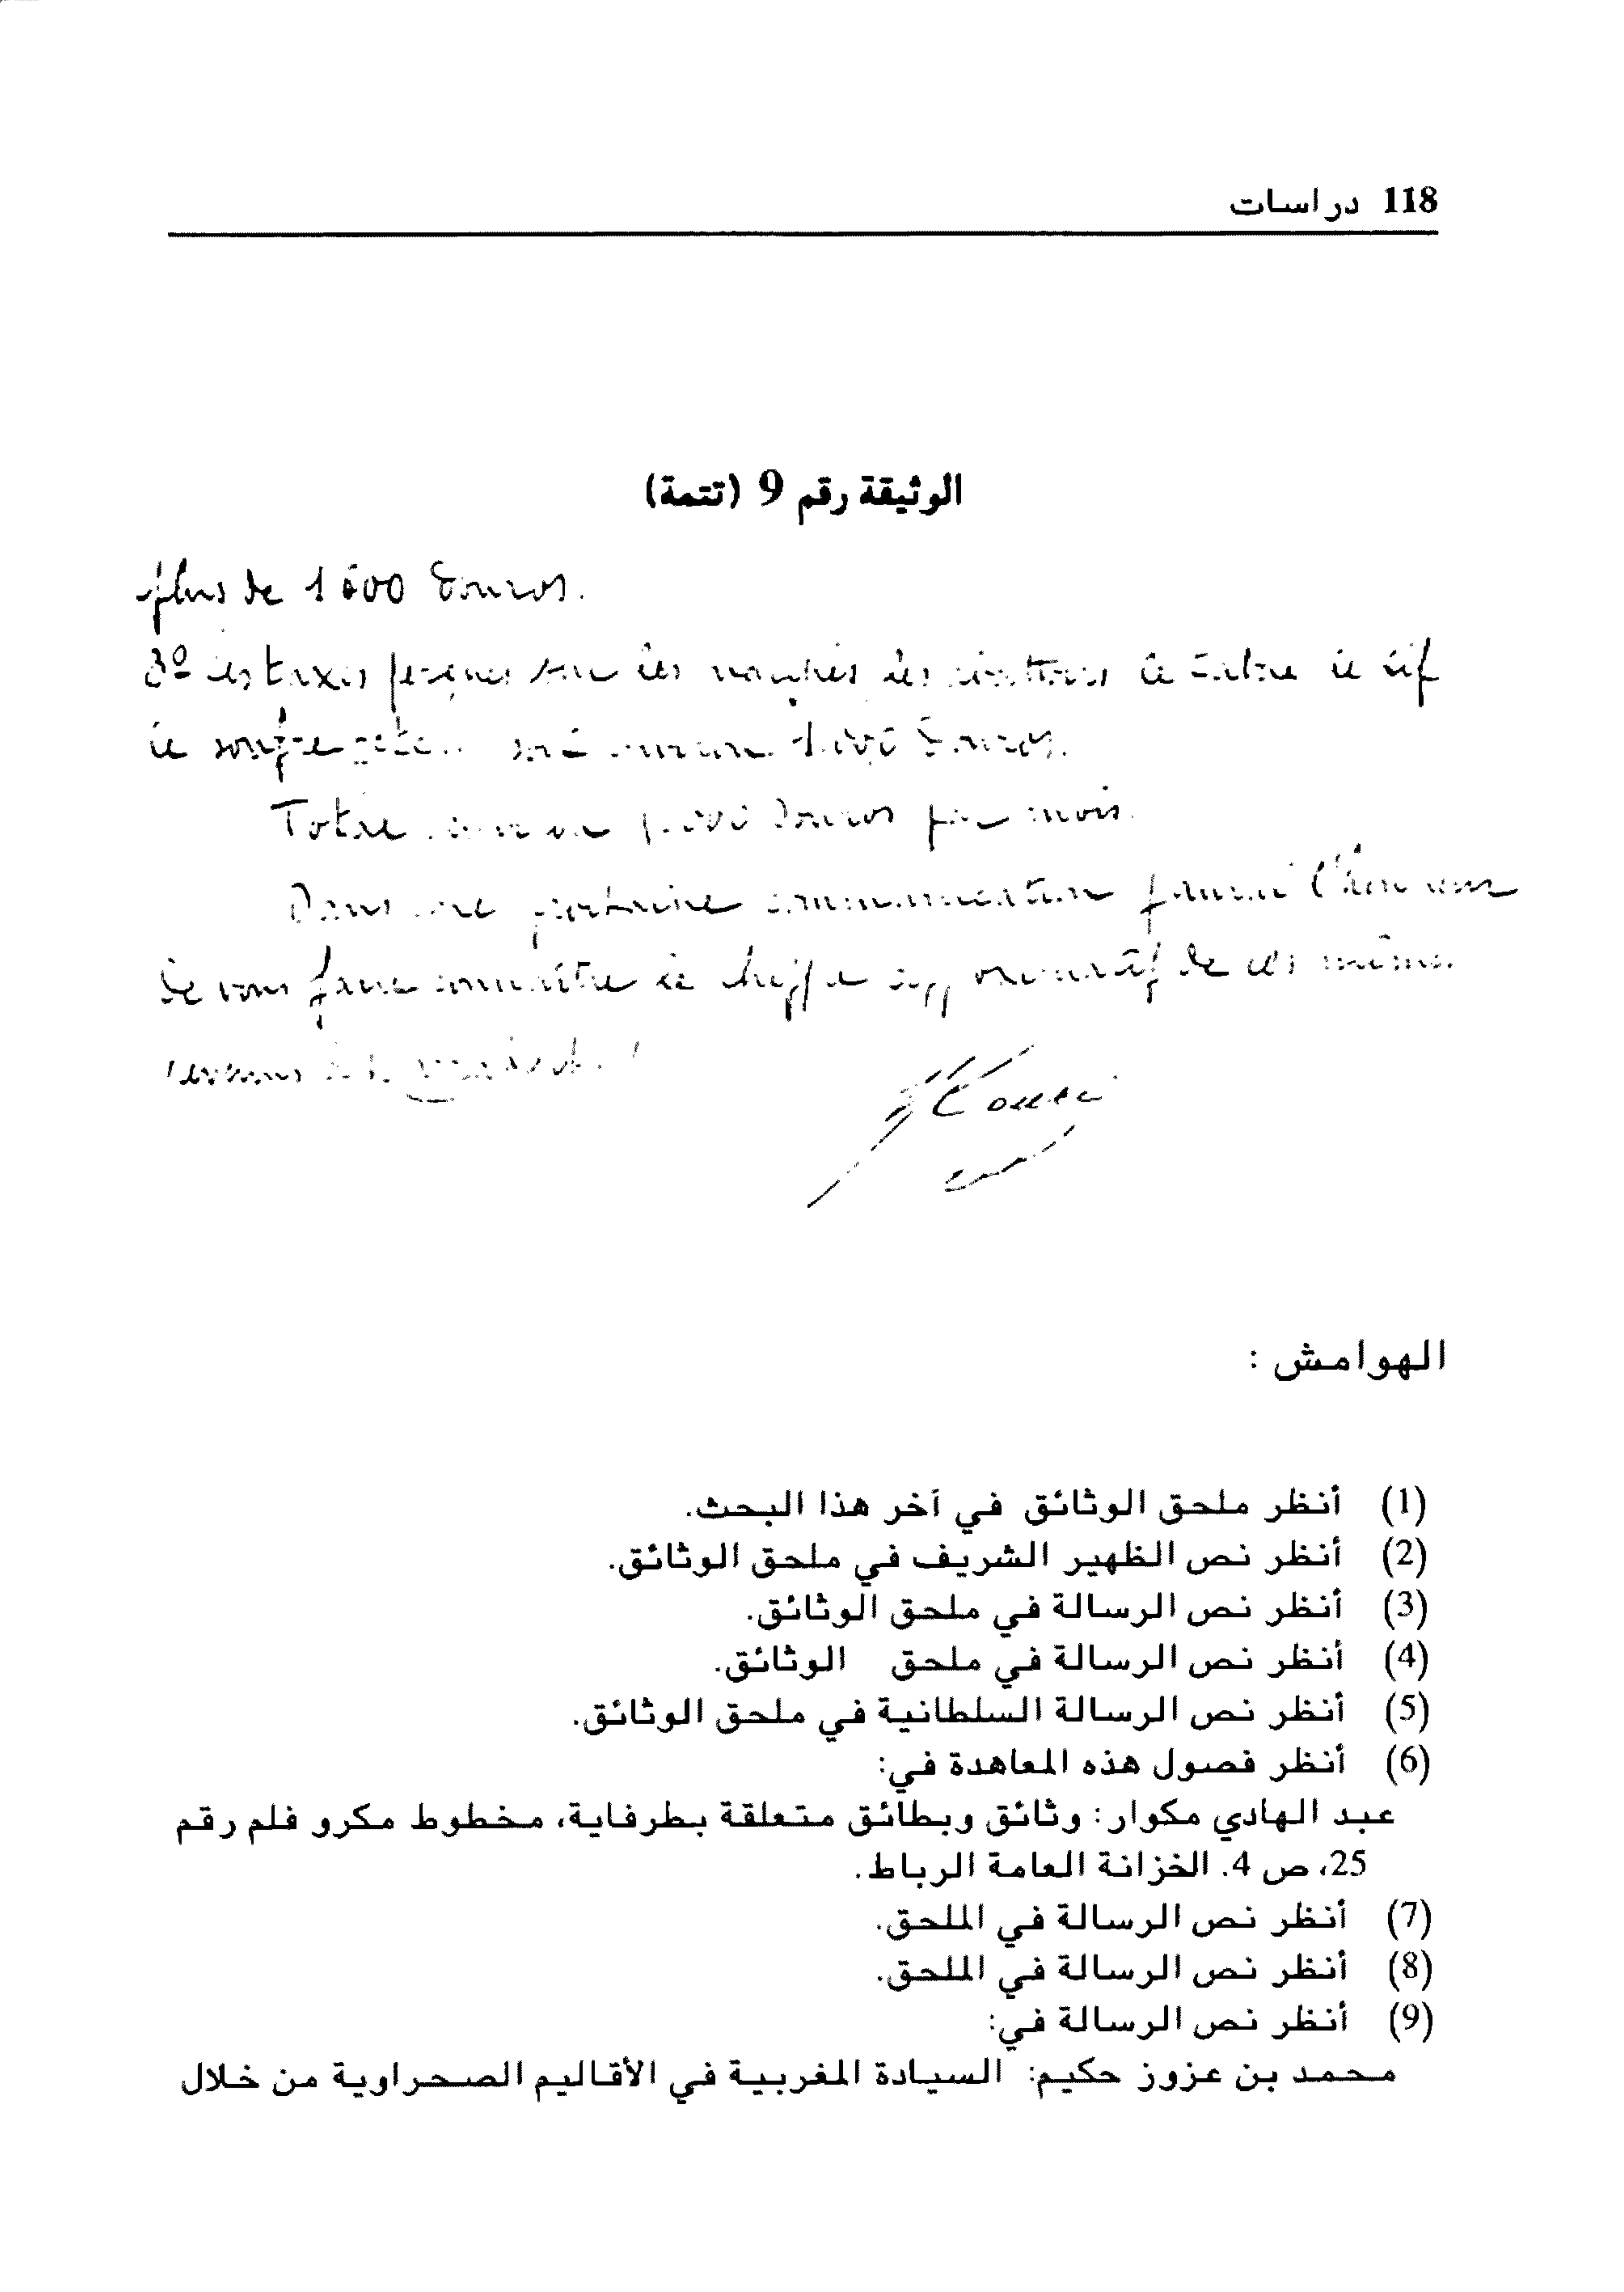 118 دراسات
الوثيقة رقم 9 (تتمة)
plus de 1600 Douros.
3º les taxes perçues sur les marchés des
Total par mois.
Dans une prochaine communication j'aurai l'honneur
de vous faire connaître le chiffre approximatif de ces mêmes
revenus
الهوامش :
(1) أنظر ملحق الوثائق في آخر هذا البحث.
(2) أنظر نص الظهير الشريف في ملحق الوثائق.
(3) أنظر نص الرسالة في ملحق الوثائق.
(4) أنظر نص الرسالة في ملحق الوثائق.
(5) أنظر نص الرسالة السلطانية في ملحق الوثائق.
(6) أنظر فصول هذه المعاهدة في:
عبد الهادي مكوار: وثائق وبطائق متعلقة بطرفاية، مخطوط مكرو فلم رقم
25، ص 4. الخزانة العامة الرباط.
(7) أنظر نص الرسالة في الملحق.
(8) أنظر نص الرسالة في الملحق.
(9) أنظر نص الرسالة في:
محمد بن عزوز حكيم: السيادة المغربية في الأقاليم الصحراوية من خلال